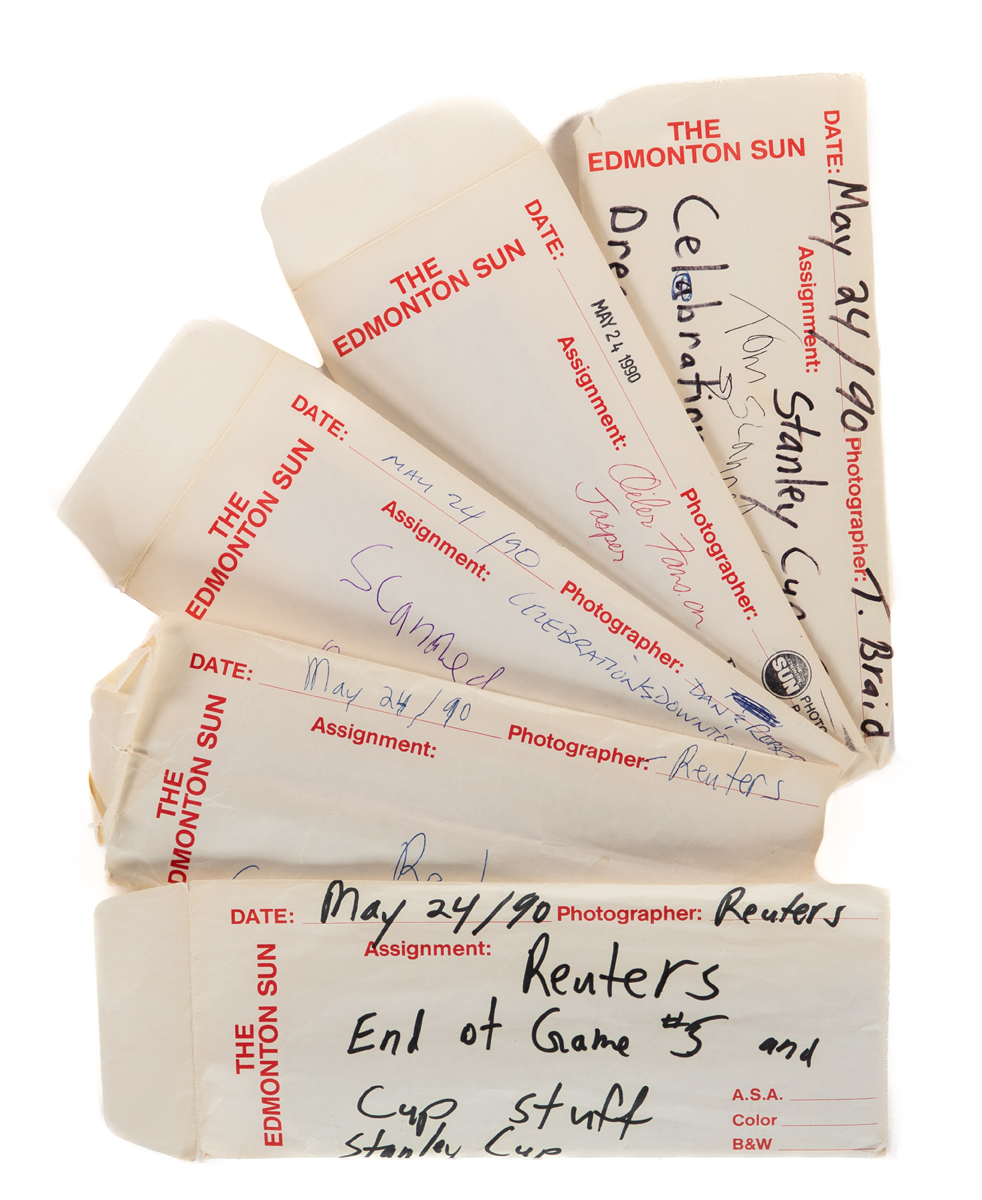 THE
EDMONTON SUN
DATE: May 24/90 Photographer: T. Braid
Assignment: Stanley Cup
Celabration
Dre
THE
EDMONTON SUN
DATE: MAY 24 1990 Photographer:
Assignment: Oiler Fans in
Jasper
SUN PHOTO
THE
EDMONTON SUN
DATE: MAY 24/90 Photographer: DAN & ROBERT
Assignment: CELEBRATIONS DOWNT
Scanned
THE
EDMONTON SUN
DATE: May 24/90 Photographer: Reuters
Assignment:
THE
EDMONTON SUN
DATE: May 24/90 Photographer: Reuters
Assignment: Reuters
End of Game #5 and
Cup stuff
Stanley Cup
A.S.A.
Color
B&W